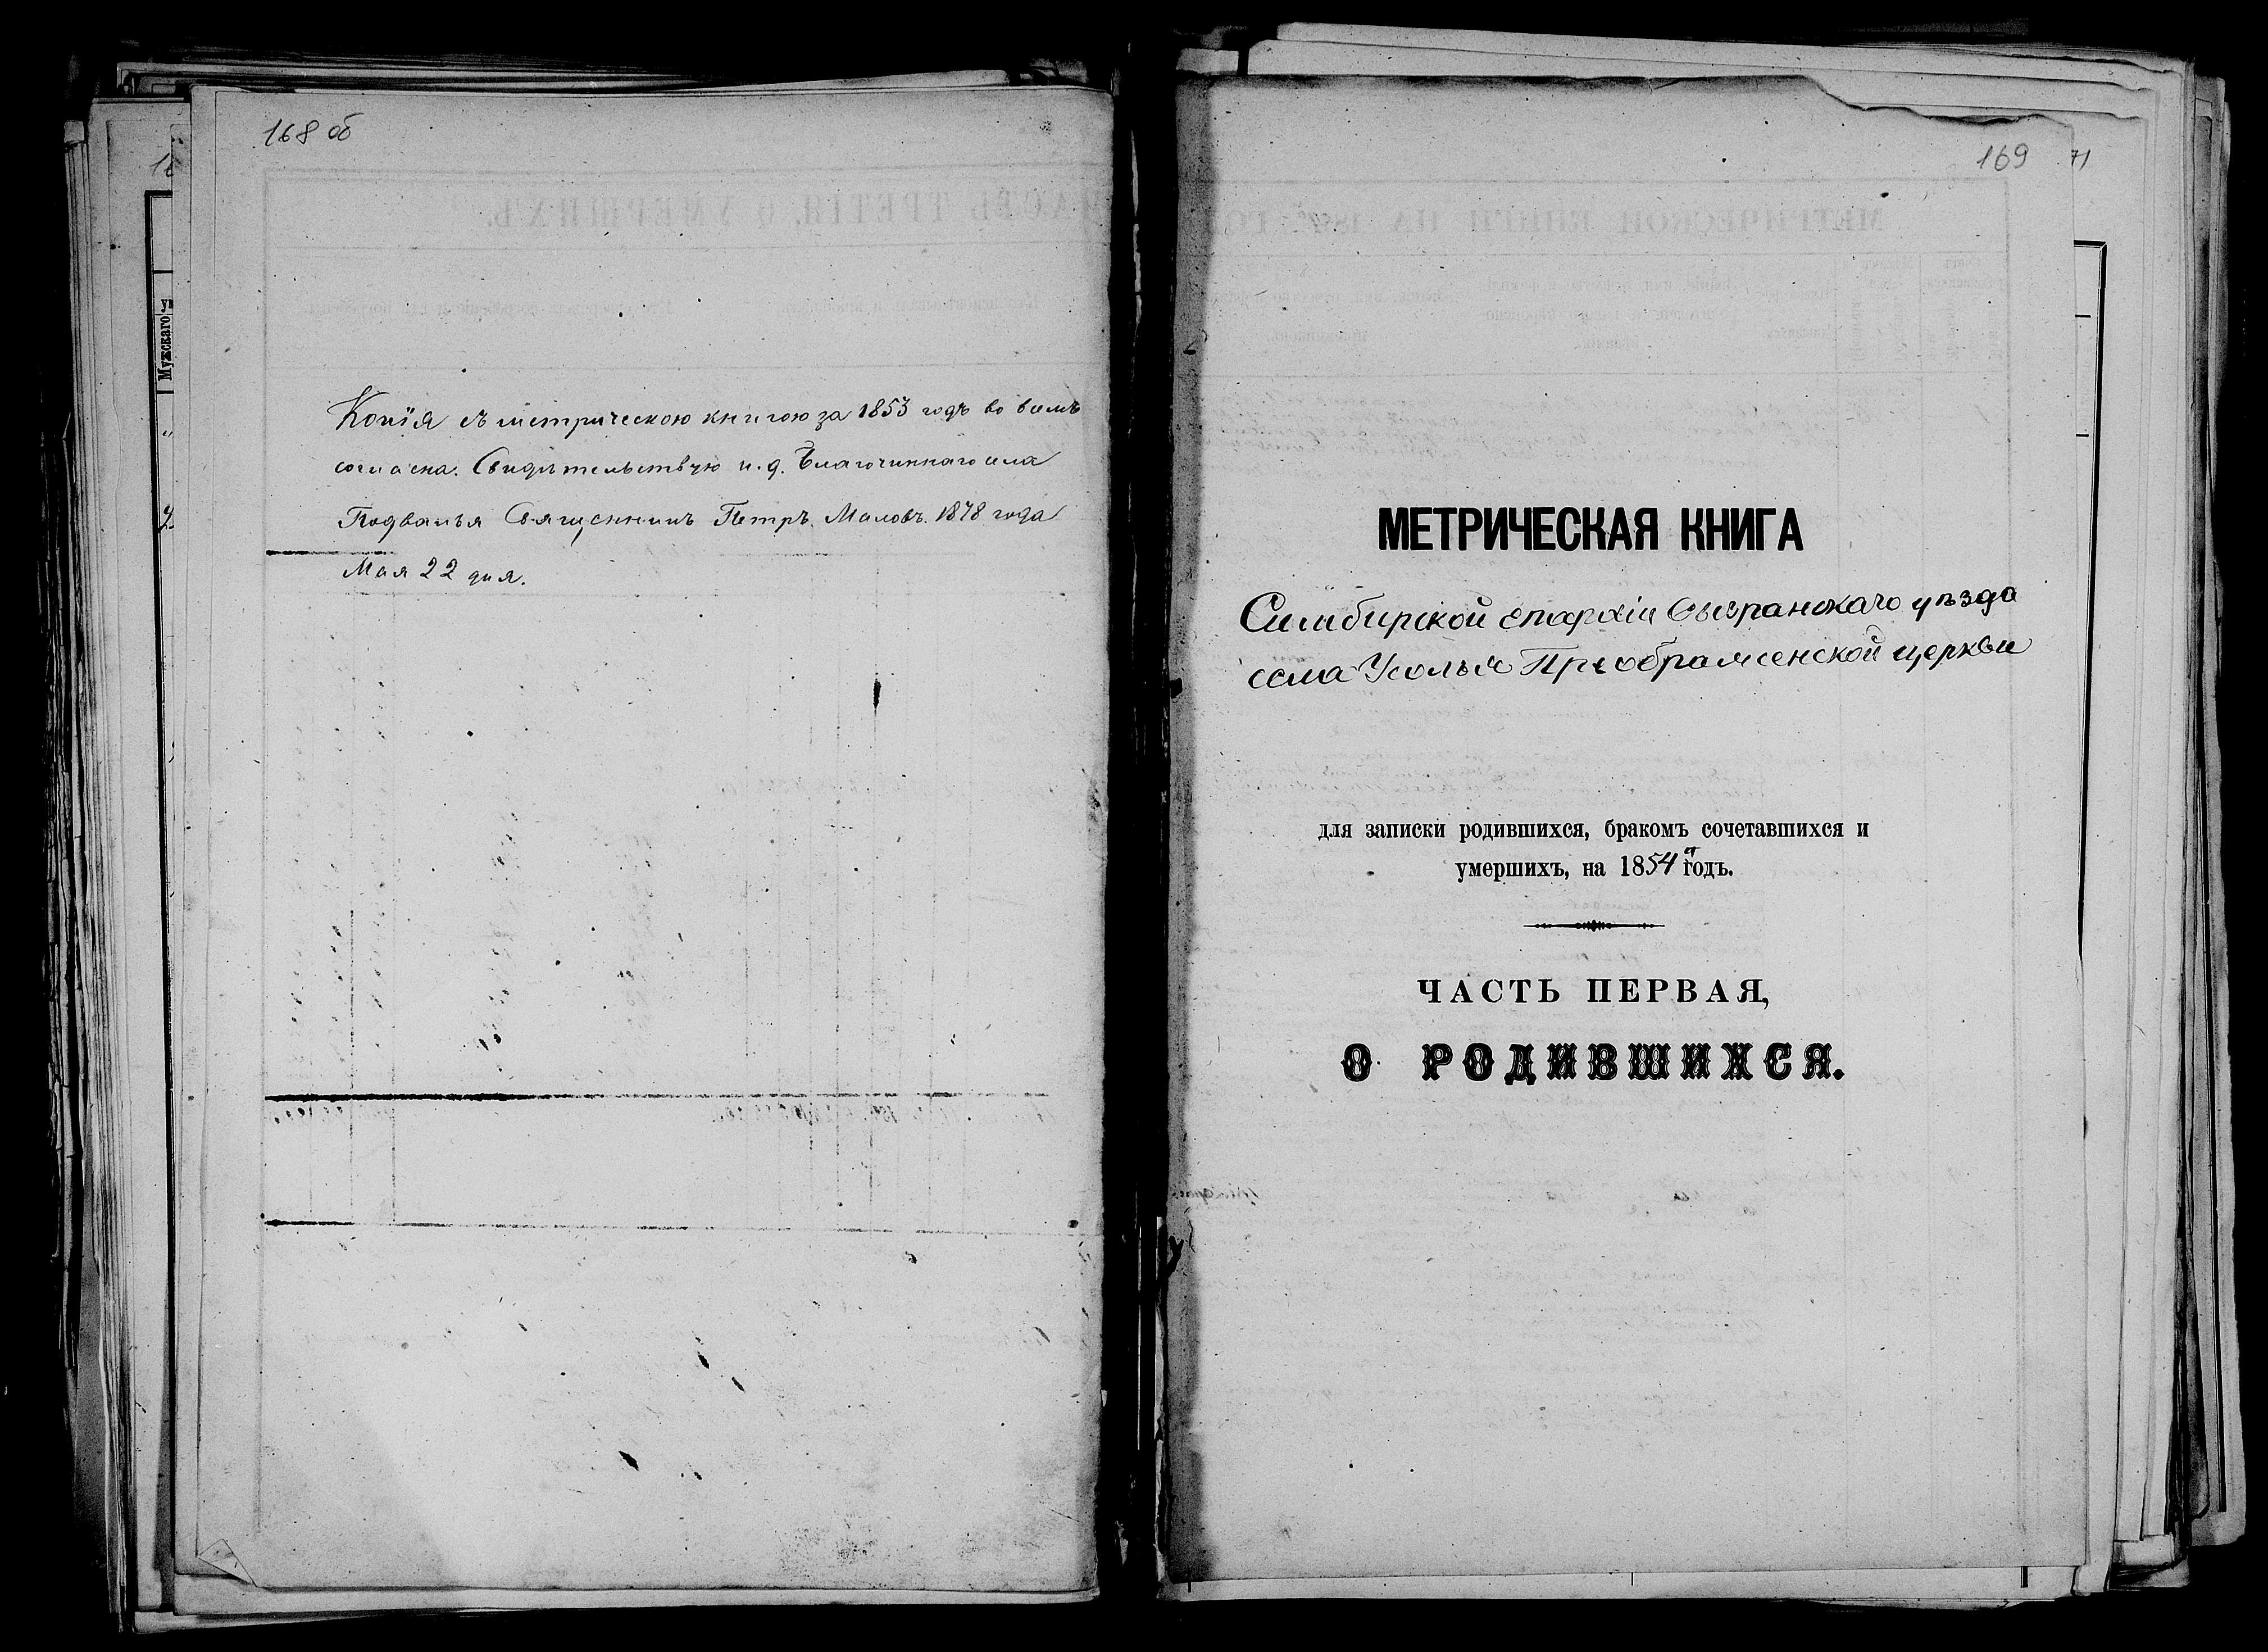 168 об
Копія съ метрическою книгою за 1853 годъ во всемъ
согласна. Свидѣтельствую и. д. Благочиннаго села
Подвалья Священникъ Петръ Маловъ. 1878 года
Мая 22 дня.
Мужскаго
169
71
МЕТРИЧЕСКАЯ КНИГА
Симбирской епархіи Сызранскаго уѣзда
села Усолья Преображенской церкви
для записки родившихся, бракомъ сочетавшихся и
умершихъ, на 1854 й годъ.
ЧАСТЬ ПЕРВАЯ,
О РОДИВШИХСЯ.